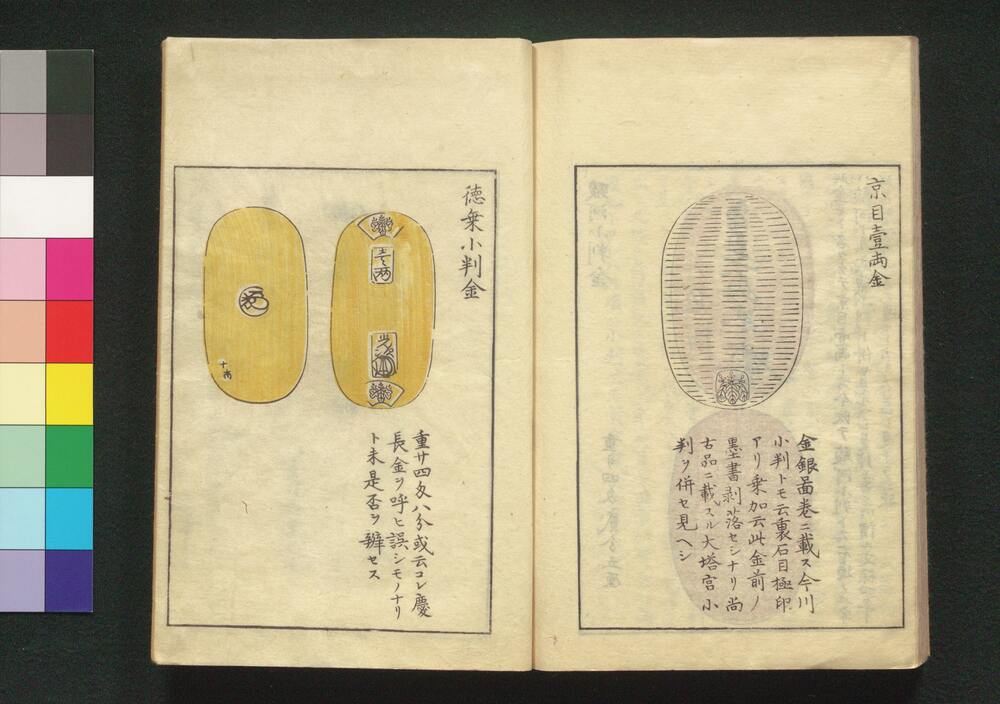 京目壹両金
金銀啚巻ニ載ス今川
小判トモ云裏石目極印
アリ乗加云此金前ノ
墨書剥落セシナリ尚
古品ニ載スル大塔宮小
判ヲ併セ見ヘシ
徳乗小判金
壹両
光次
重サ四匁八分或云コレ慶
長金ヲ呼ヒ誤シモノナリ
ト未是否ヲ辨セス